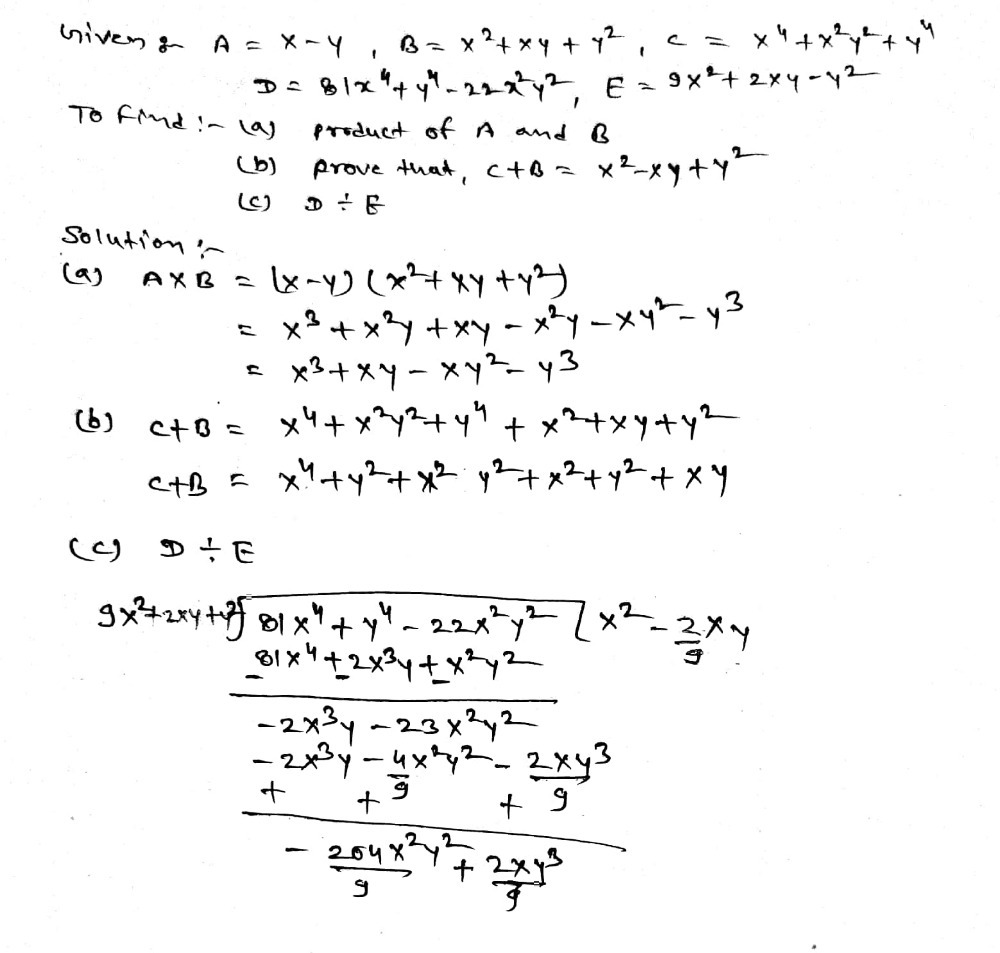 Given :- A = x-y , B = x²+xy+y² , C = x⁴+x²y²+y⁴
D = 81x⁴+y⁴-22x²y², E = 9x²+2xy-y²
To Find :- (a) product of A and B
(b) prove that, C+B = x²-xy+y²
(c) D ÷ E
Solution :-
(a) A×B = (x-y) (x²+xy+y²)
= x³+x²y+xy-x²y-xy²-y³
= x³+xy-xy²-y³
(b) C+B = x⁴+x²y²+y⁴+x²+xy+y²
C+B = x⁴+y²+x² y²+x²+y²+xy
(c) D ÷ E
9x²+2xy+y²) 81x⁴+y⁴-22x²y² ( x²-2/9xy
81x⁴+2x³y+x²y²
- - -
-2x³y-23x²y²
-2x³y-4/9x²y²-2xy³/9
+ + +
-204x²y²/9+2xy³/9